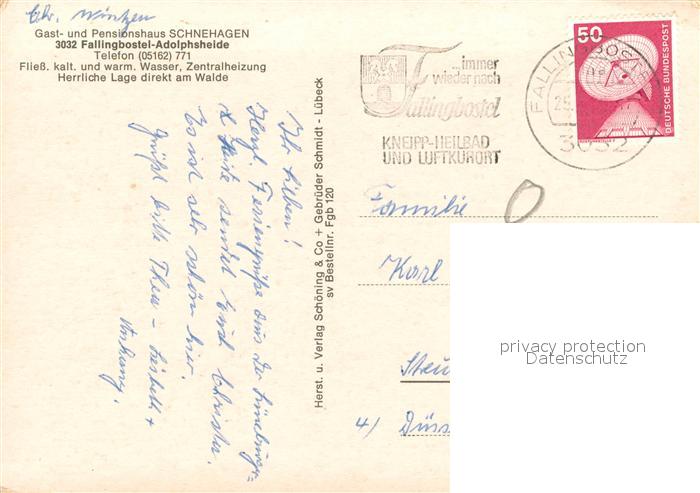 Chr. Wintzen
Gast- und Pensionshaus SCHNEHAGEN
3032 Fallingbostel-Adolphsheide
Telefon (05162) 771
Fließ. kalt. und warm. Wasser, Zentralheizung
Herrliche Lage direkt am Walde
Ihr Lieben!
Herzl. Feriengrüße aus der Lüneburger
Heide sendet Euch Christa.
Es ist sehr schön hier.
Grüßt bitte Thea - Lisbeth +
Herst. u. Verlag Schöning & Co + Gebrüder Schmidt - Lübeck
sv Bestellnr. Fgb 120
...immer
wieder nach
Fallingbostel
KNEIPP-HEILBAD
UND LUFTKURORT
FALLINGBOSTEL
3032
50
DEUTSCHE BUNDESPOST
Familie
Karl
4) Düss
privacy protection
Datenschutz